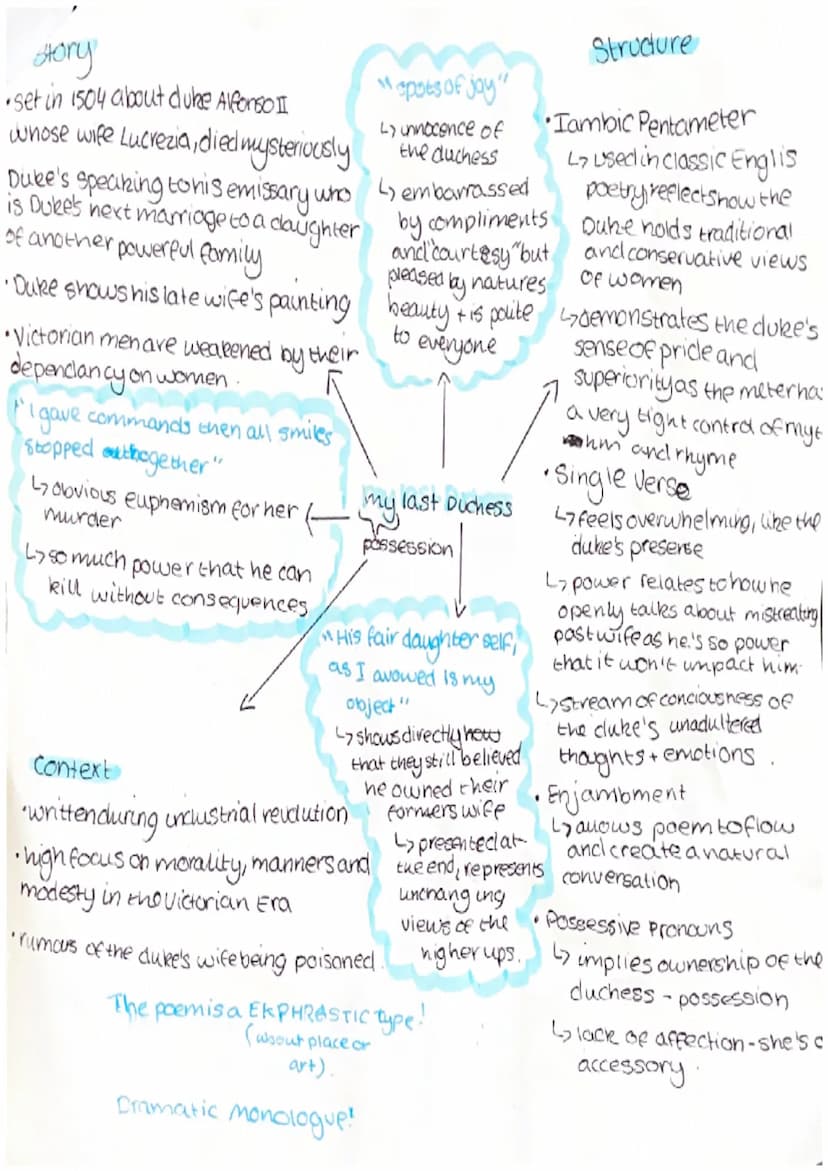 Story
• set in 1504 about duke Alfonso II
whose wife Lucrezia, died mysteriously
Duke's speaking to his emissary who
is Duke's next marriage to a daughter
of another powerful family
• Duke shows his late wife's painting
• Victorian men are weakened by their
dependancy on women.
"I gave commands then all smiles
stopped altogether"
↳ obvious euphemism for her
murder
↳ so much power that he can
kill without consequences
"spots of joy"
↳ innocence of
the duchess
↳ embarrassed
by compliments
and "courtesy" but
pleased by natures
beauty + is polite
to everyone
my last Duchess
possession
"His fair daughter self,
as I avowed is my
object"
↳ shows directly how
that they still believed
he owned their
formers wife
↳ presented at
the end, represents
unchanging
views of the
higher ups.
Structure
• Iambic Pentameter
↳ used in classic Englis
poetry, reflects how the
Duke holds traditional
and conservative views
of women
↳ demonstrates the duke's
sense of pride and
superiority as the meter ha
a very tight control of ryt
hm and rhyme
• Single verse
↳ feels overwhelming, like the
duke's presense
↳ power relates to how he
openly talks about mistreating
past wife as he's so power
that it won't impact him.
↳ stream of conciousness of
the duke's unadultered
thoughts + emotions.
• Enjambment
↳ allows poem to flow
and create a natural
conversation
• Possessive Pronouns
↳ implies ownership of the
duchess - possession
↳ lack of affection - she's a
accessory.
Context
• written during industrial revolution
• high focus on morality, manners and
modesty in the Victorian Era
• rumours of the duke's wife being poisoned.
The poem is a EKPHRASTIC type!
(about place or
art).
Dramatic Monologue!